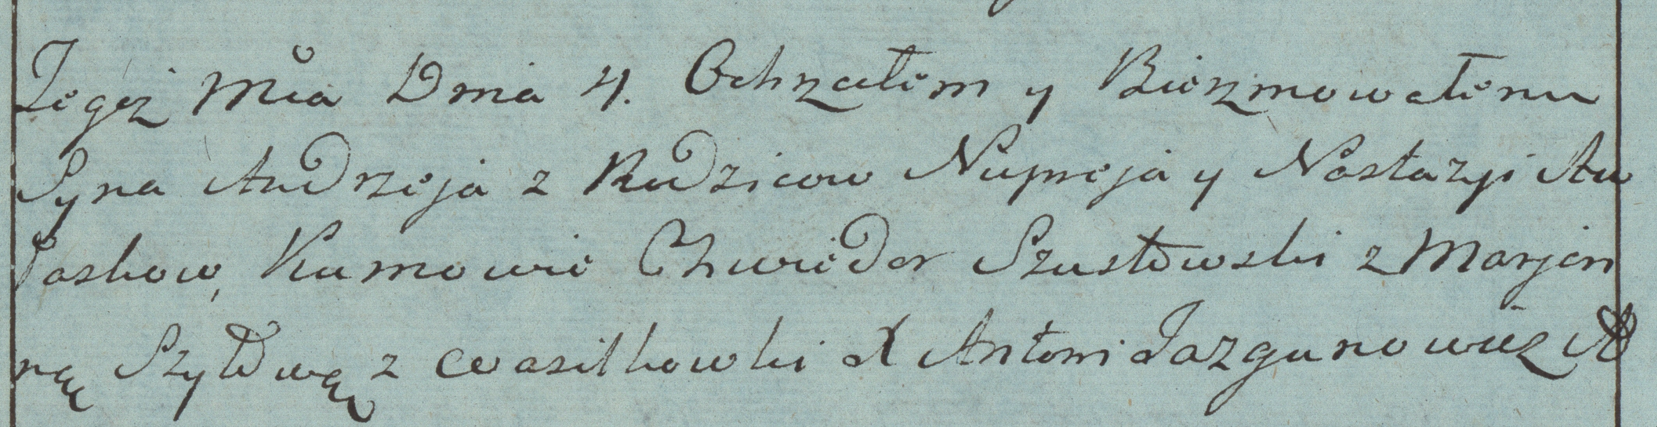 Tegoż Mca Dnia 4. Ochrzciłem y Bierzmowałem
Syna Andrzeja z Rodzicow Nupreja y Nastazyi Au
laskow, Kumowie Chwiedor Szustowski z Marjan
ną Szyłową z Wasilkowki X Antoni Jazgunowicz